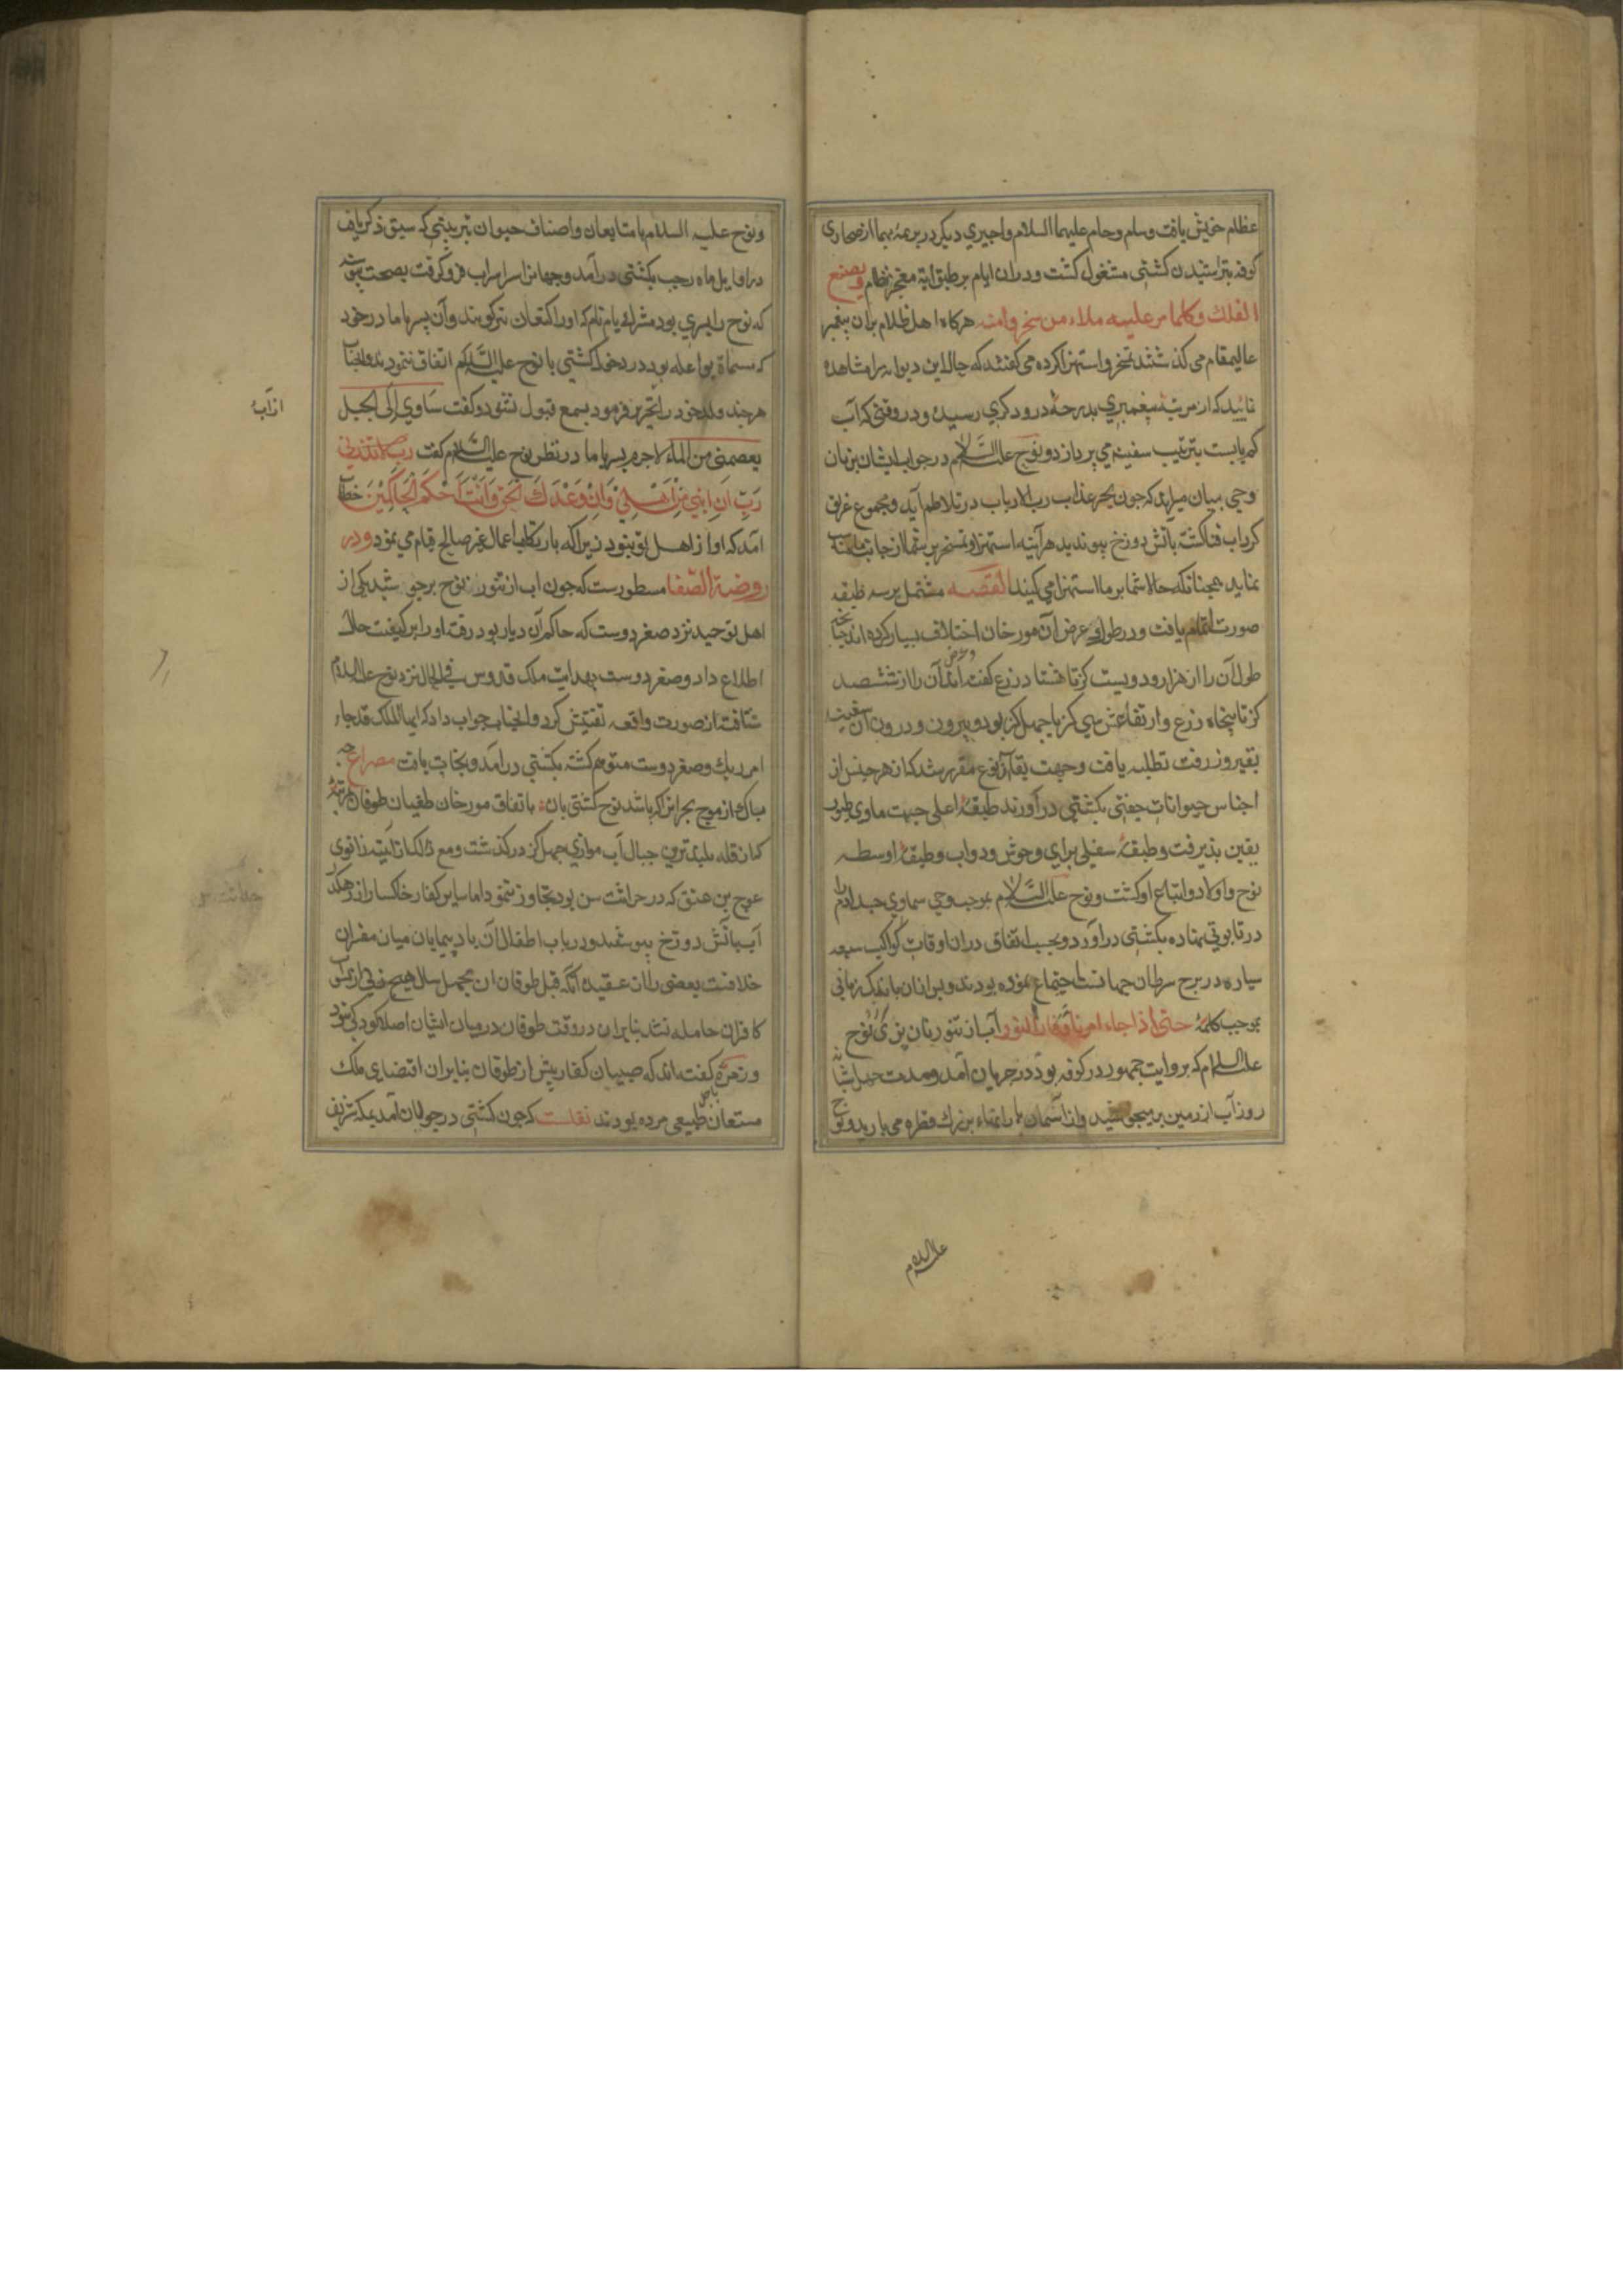 عظام خویش یافت وسام وحام علیهما السلام واجیری دیکر در برمهٔ بهما از صحاری
کوفه بتراشیدن کشتی مشغول کشت ودران ایام بر طبق ایهٔ معجز نظام ویصنع
الفلک وکلما مر علیه ملاء من سخر وامنه هرکاه اهل ظلام بران پیغمبر
عالیمقام می کذشتند تمسخر واستهزا کرده می کفتند که حال این دیوانه را مشاهده
نمایید که از مرتبهٔ پیغمبری بدرجهٔ درودکری رسیده ودر وقتی که آب
کم یابست بترتیب سفینه می پردازد ونوح علیه السلام در جواب ایشان بزبان
وحی بیان میراند که چون بحر عذاب رب الارباب در تلاطم آید ومجموع غریق
کرداب فنا کشته باتش دوزخ پیوندید هرآینه استهزا وتمسخر بر شما از جانب ما
نماید همچنانکه حالا شما بر ما استهزا می کنید القصه مشتمل بر سه طبقه
صورت اتمام یافت ودر طول وعرض آن مورخان اختلاف بسیار کرده اند چنانچه
طول آن را از هزار ودویست کز تا هشتاد زرع کفته اند وعرض آن را از ششصد
کز تا پنجاه زرع وارتفاعش سی کز یا چهل کز بود وبیرون ودرون آن سفینه
بقیر وزفت تطلیه یافت وجهت بقآء نوع مقرر شد که از هر جنس از
اجناس حیوانات جفتی بکشتی درآورند طبقهٔ اعلی جهت ماوی طیور
یقین پذیرفت وطبقهٔ سفلی برای وحوش ودواب وطبقهٔ اوسط به
نوح واولاد واتباع او کشت ونوح علیه السلام بموجب وحی سماوی جسد آدم را
در تابوتی نهاده بکشتی درآورد وبحسب اتفاق دران اوقات کواکب سبعه
سیاره در برج سرطان اجتماع نموده بودند وبعد ازان باندک زمانی
بموجب کلمهٔ حتی اذا جاء امرنا وفار التنور آب از تنور نان پزی نوح
علیه السلام که بروایت جمهور در کوفه بود در جریان آمد ومدت چهل شبانه
روز آب از زمین بر میجوشید واز آسمان بارانهاء بزرک قطره می بارید ونوح
علیه السلام
ونوح علیه السلام با متابعان واصناف حیوان بترتیبی که سبق ذکر یافت
در اوایل ماه رجب بکشتی درآمد وجهان را سراسر آب فرو کرفت بصحت پیوسته
که نوح را پسری بود مشرک یام نام که اورا کنعان نیز کویند وآن پسر با مادر خود
که مسماة بواعله بود در دخول کشتی با نوح علیه السلام اتفاق ننمودند وآنجناب
هرچند ولد خود را تحریض فرمود بسمع قبول نشنود وکفت ساوی الی الجبل
یعصمنی من الماء لاجرم پسر با مادر در نظر نوح علیه السلام کفت رب
رَبِّ اِنَّ ابْنِي مِنْ اَهْلِي وَاِنَّ وَعْدَكَ الْحَقُّ وَاَنْتَ اَحْكَمُ الْحَاكِمِيْنَ خطاب
آمد که او از اهل تو نبود زیرا که بارتکاب اعمال غیر صالح قیام می نمود ودر
روضة الصفا مسطورست که چون آب از تنور نوح برجوشید یکی از
اهل توحید نزد صغردوست که حاکم آن دیار بود رفته اورا بر کیفیت حال
اطلاع داد وصغردوست بهدایت ملک قدوس فی الحال نزد نوح علیه السلام
شتافت از صورت واقعه تفتیش کرد وآنجناب جواب داد که ایها الملک قد جاء
امر ربک وصغردوست متوهم کشته بکشتی درآمد ونجات یافت مصراع چه
باک از موج بحر آنرا که باشد نوح کشتی بان باتفاق مورخان طغیان طوفان بمرتبهٔ
که از قله بلندترین جبال آب موازی چهل کز درکذشت ومع ذلک از زانوی
عوج بن عنق که در حداثت سن بود تجاوز ننمود اما سایر کفار خاکسار از رهکذر
آب باتش دوزخ پیوستند ودر باب اطفال آن بادپیمایان میان مفسران
خلافست بعضی را آن عقیده آنکه قبل طوفان از بچهل سال هیچ
کافران حامله نشد بنابران در وقت طوفان در میان ایشان اصلا کودکی نبود
وزمرهٔ کفته اند که صبیان کفار پیش از طوفان بنابران اقتضای ملک
مستعان باجل طبیعی مرده بودند نقلست که چون کشتی در جولان آمد بمکه شریف
از آب
حداثت